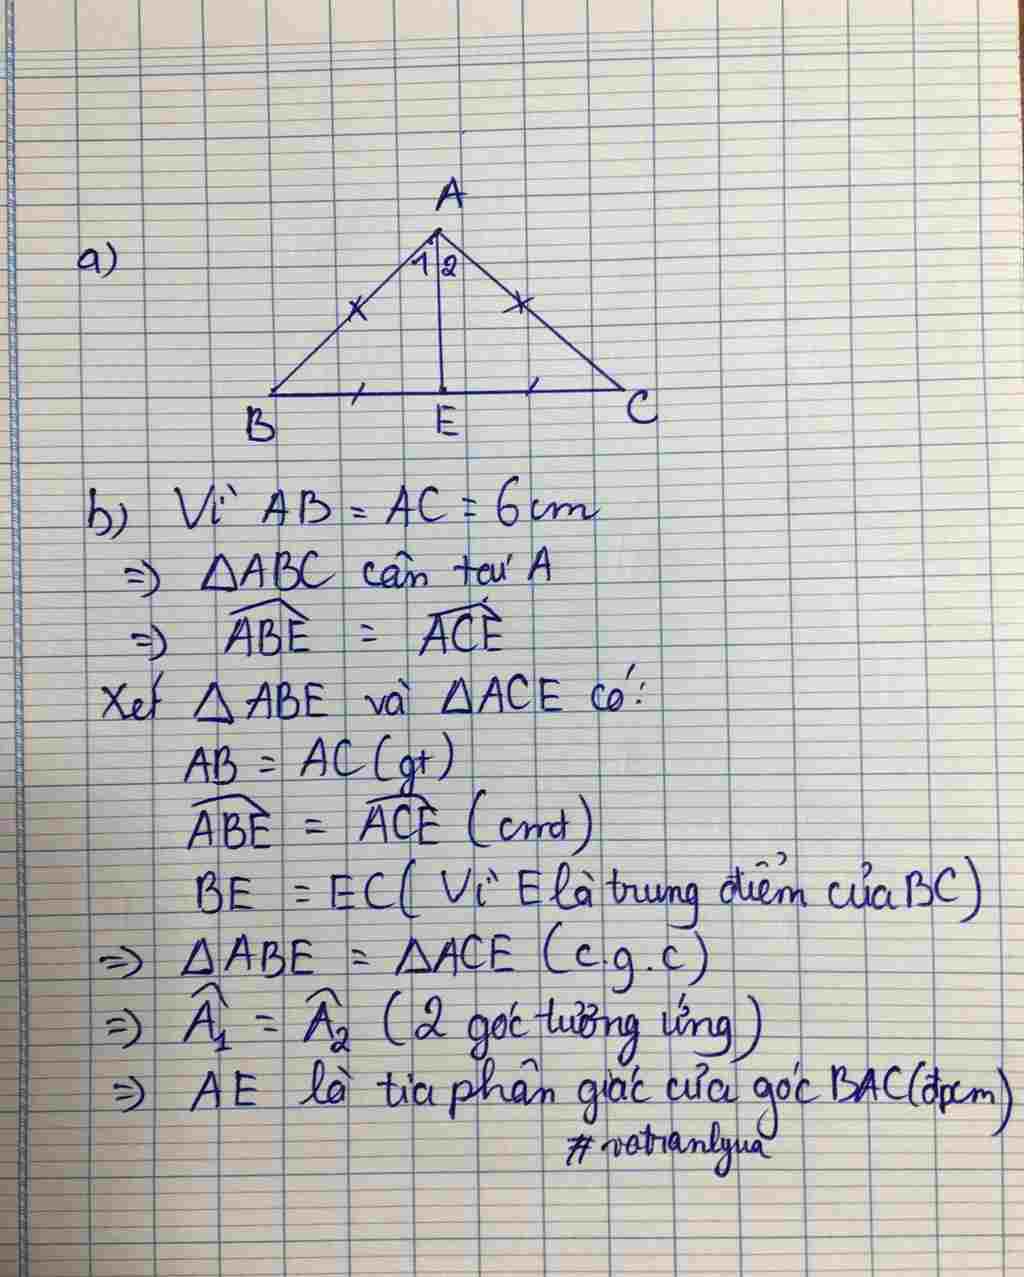 A
a)
1 2
B E C
b) Vì AB = AC = 6cm
=> ΔABC cân tại A
=> \widehat{ABE} = \widehat{ACE}
Xét ΔABE và ΔACE có:
AB = AC (gt)
\widehat{ABE} = \widehat{ACE} (cmt)
BE = EC (Vì E là trung điểm của BC)
=> ΔABE = ΔACE (c.g.c)
=> \widehat{A}_1 = \widehat{A}_2 (2 góc tương ứng)
=> AE là tia phân giác của góc BAC (đpcm)